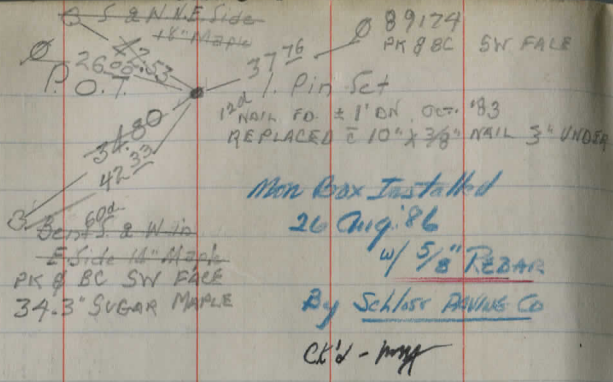 S & W N.E. Side
18" Maple
89174
PK & BC SW FACE
42.53
26.00
P.O.T.
37 76
1. Pin Set
12d NAIL FD. ± 1' DN. OCT. '83
REPLACED c̄ 10" x 3/8" NAIL 3" UNDER
34.80
42 33
60d
Bent S & W in
E. Side 14" Maple
PK & BC SW FACE
34.3" SUGAR MAPLE
Mon Box Installed
26 Aug. '86
w/ 5/8" REBAR
By Schloss PAVING CO
Ck'd -